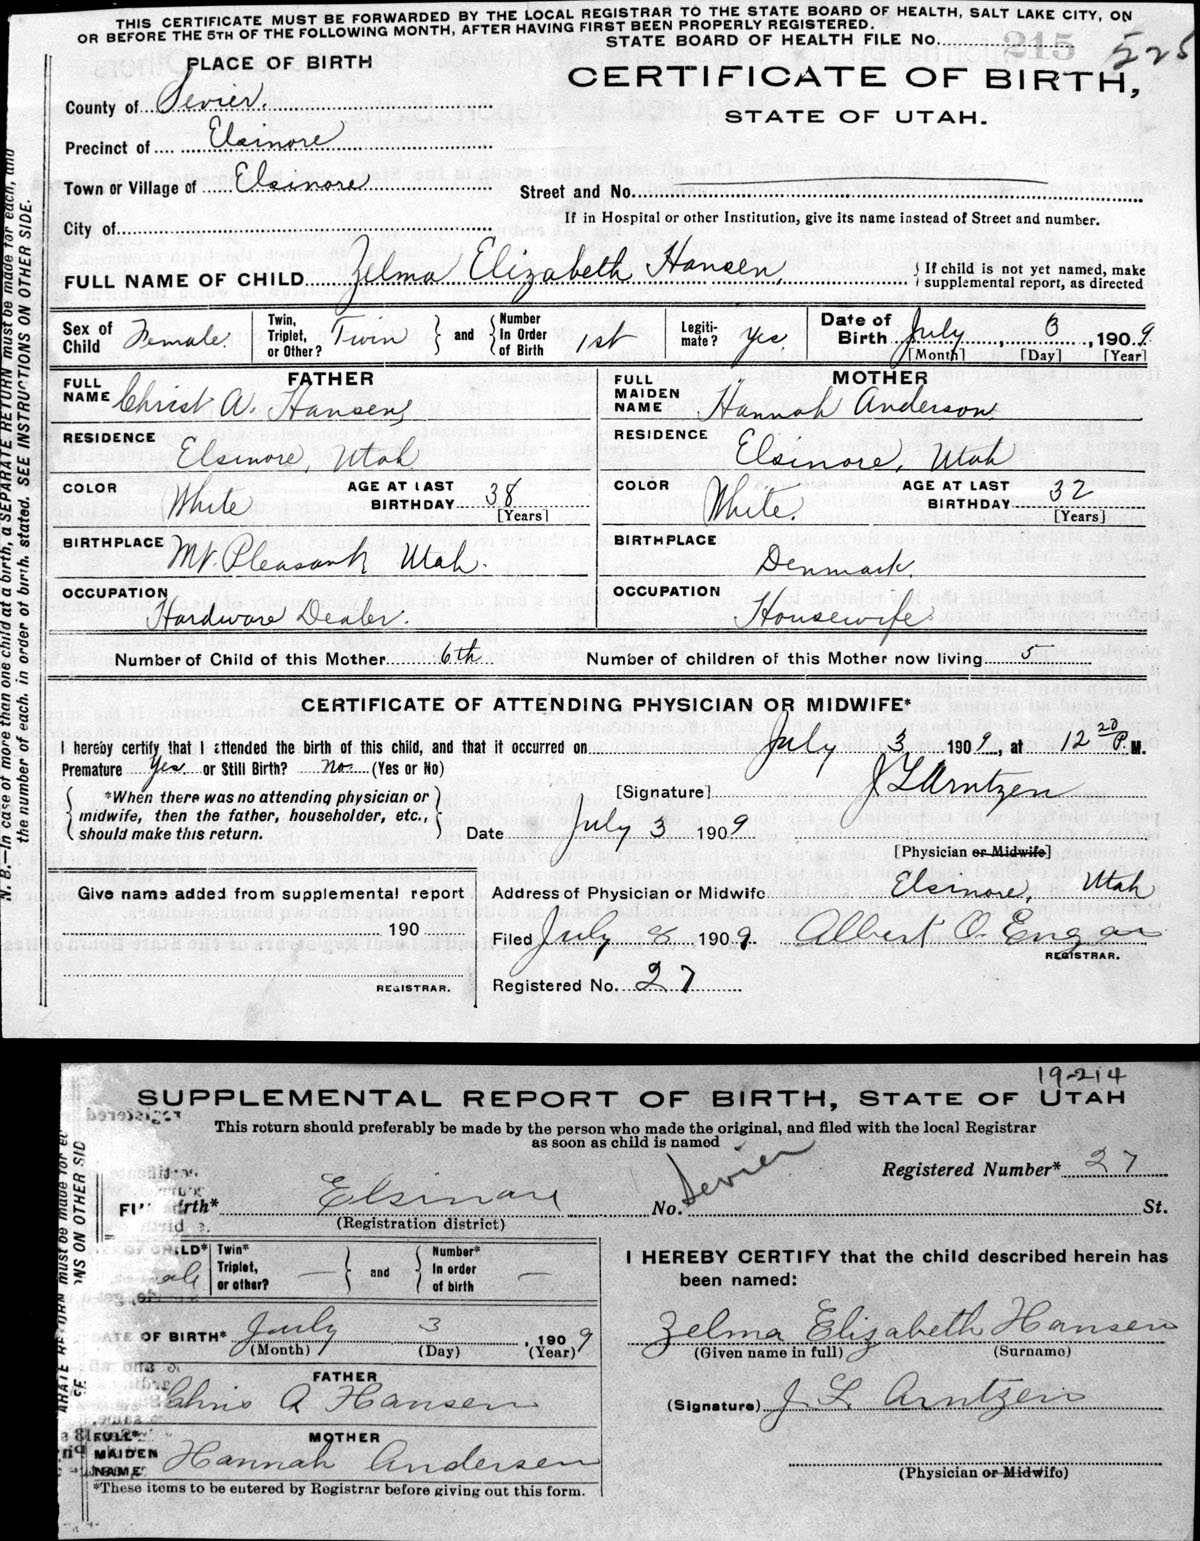 THIS CERTIFICATE MUST BE FORWARDED BY THE LOCAL REGISTRAR TO THE STATE BOARD OF HEALTH, SALT LAKE CITY, ON
OR BEFORE THE 5TH OF THE FOLLOWING MONTH, AFTER HAVING FIRST BEEN PROPERLY REGISTERED.
STATE BOARD OF HEALTH FILE No. 215 525
PLACE OF BIRTH
CERTIFICATE OF BIRTH,
STATE OF UTAH.
County of Sevier.
Precinct of Elsinore
Town or Village of Elsinore
Street and No.
City of
If in Hospital or other Institution, give its name instead of Street and number.
FULL NAME OF CHILD Zelma Elizabeth Hansen,
If child is not yet named, make
supplemental report, as directed
Sex of Child Female. Twin, Triplet, or Other? Twin and Number In Order of Birth 1st Legiti-mate? Yes. Date of Birth July 3, 1909.
[Month] [Day] [Year]
FATHER MOTHER
FULL NAME Christ A. Hansen, FULL MAIDEN NAME Hannah Anderson
RESIDENCE Elsinore, Utah RESIDENCE Elsinore, Utah
COLOR White AGE AT LAST BIRTHDAY 38 [Years] COLOR White. AGE AT LAST BIRTHDAY 32 [Years]
BIRTHPLACE Mt. Pleasant Utah. BIRTHPLACE Denmark.
OCCUPATION Hardware Dealer. OCCUPATION Housewife
Number of Child of this Mother 6th Number of children of this Mother now living 5
CERTIFICATE OF ATTENDING PHYSICIAN OR MIDWIFE*
I hereby certify that I attended the birth of this child, and that it occurred on July 3 1909, at 12 20 P. M.
Premature Yes. or Still Birth? no. (Yes or No)
*When there was no attending physician or
midwife, then the father, householder, etc.,
should make this return.
[Signature] J L Arntzen
Date July 3 1909
[Physician or Midwife]
Give name added from supplemental report
190
REGISTRAR.
Address of Physician or Midwife Elsinore, Utah
Filed July 8 1909. Albert O. Engar
REGISTRAR.
Registered No. 27
N. B.—In case of more than one child at a birth, a SEPARATE RETURN must be made for each, and
the number of each, in order of birth, stated. SEE INSTRUCTIONS ON OTHER SIDE.
19-214
SUPPLEMENTAL REPORT OF BIRTH, STATE OF UTAH
This return should preferably be made by the person who made the original, and filed with the local Registrar
as soon as child is named
Registered Number* 27
Birth* Elsinore No. Sevier St.
(Registration district)
CHILD* Twin* Triplet, or other? — and Number* In order of birth —
I HEREBY CERTIFY that the child described herein has
been named:
DATE OF BIRTH* July 3, 1909
(Month) (Day) (Year)
Zelma Elizabeth Hansen
(Given name in full) (Surname)
FATHER
Chris A Hansen
(Signature) J. L. Arntzen
MOTHER
FULL* MAIDEN NAME Hannah Andersen
(Physician or Midwife)
*These items to be entered by Registrar before giving out this form.